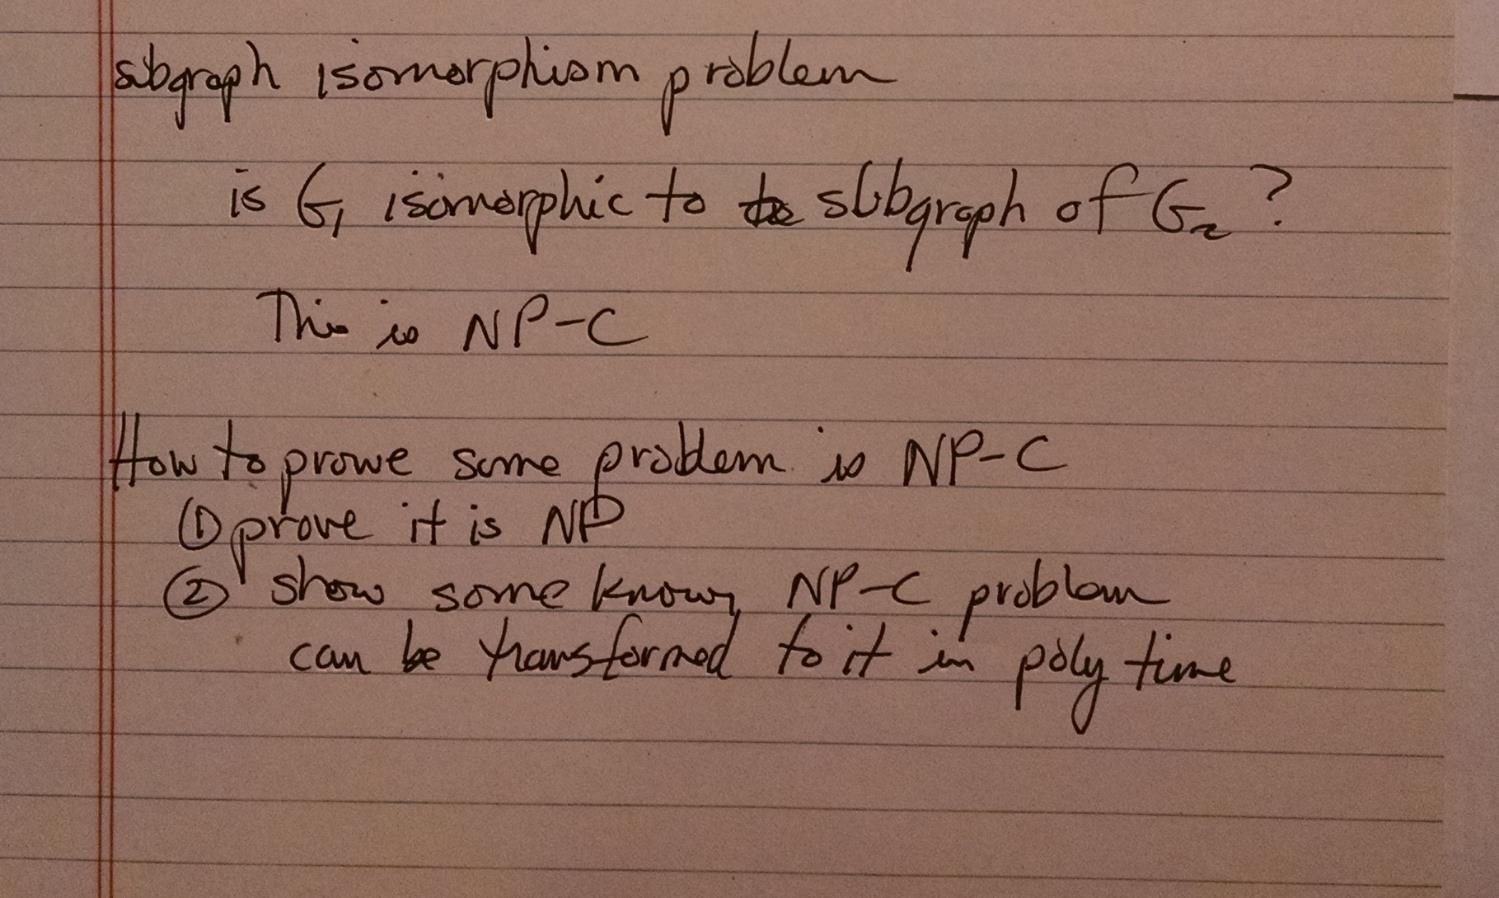 subgraph isomorphism problem
is G₁ isomorphic to subgraph of G₂ ?
This is NP-C
How to prove some problem is NP-C
① prove it is NP
② show some known NP-C problem
can be transformed to it in poly time